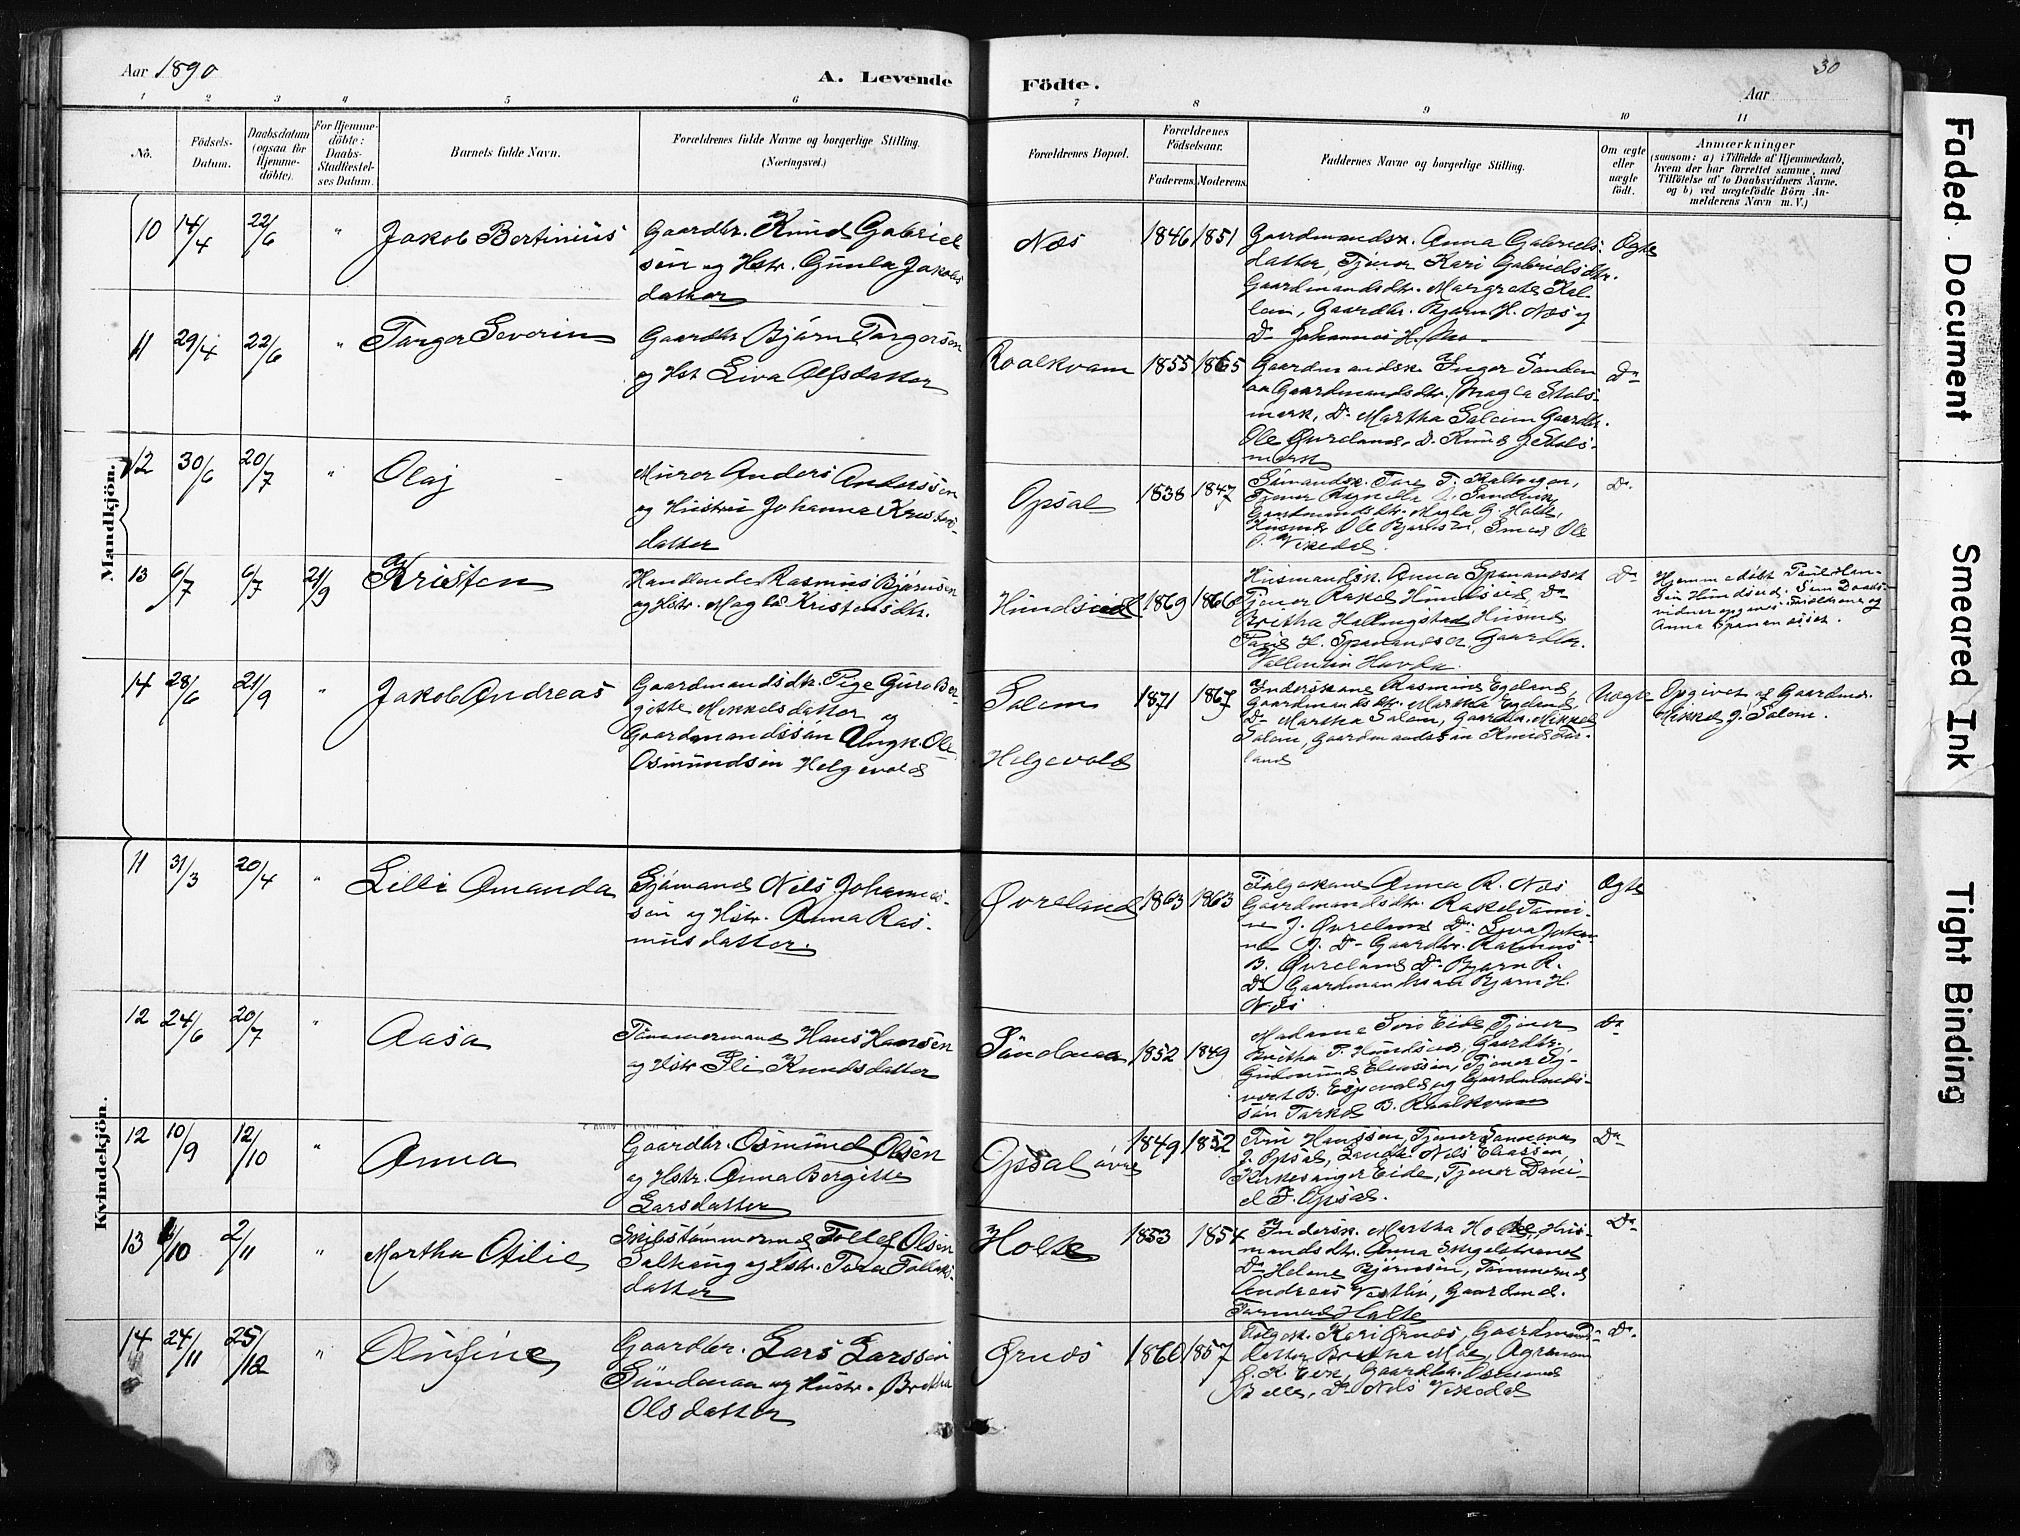 Aar 1890
A. Levende Födte.
30
Aar
1 2 3 4 5 6 7 8 9 10 11
No.
Födsels-
Datum.
Daabsdatum
(ogsaa for
Hjemme-
döbte).
For Hjemme-
döbte:
Daabs-
Stadfæstel-
ses Datum.
Barnets fulde Navn.
Forældrenes fulde Navne og borgerlige Stilling.
(Næringsvei.)
Forældrenes Bopæl.
Forældrenes
Födselsaar.
Faderens. Moderens.
Faddernes Navne og borgerlige Stilling.
Om ægte
eller
uægte
födt.
Anmærkninger
(saasom: a) i Tilfælde af Hjemmedaab,
hvem der har forrettet samme, med
Tilföielse af to Daabsvidners Navne,
og b) ved uægtefödte Börn An-
melderens Navn m. V.)
Mandkjön.
10 14/4 22/6 " Jakob Bertinius
Gaardbr. Knud Gabriel
sen og Hstr. Gunla Jakobs
datter
Næs 1846 1851
Gaardmandsk. Anna Gabriels-
datter, Tjener Kari Gabrielsdtr.
Gaardmandsdtr. Margrete
Gaardbr. Bjarn H. Næs og
Do Johannes H.
Ægte
11 29/4 22/6 " Targer Severin
Gaardbr Bjørn Targersen
og Hst Siva Olfsdatter
Roalkvam 1855 1865
Gaardmandsk Inger Sanden
Gaardmandsdtr. Magla Stols-
merk, Do Martha Salem Gaardbr.
Ole Øvreland, D. Knud J. Stols-
merk
Do
12 30/6 20/7 " Olaj
Murer Anders Anderssen
og Hustru Johanna
datter
Opsal 1838 1847
Sømandsk. Tore T.
Tjener Sandvik,
Gaardmandsdtr. Magla G. Halte,
Husmd. Ole Bjørnsen, Smed Ole
Vikedal.
Do
13 6/7 6/7 21/9 Kristen
Handlende Rasmus Bjørnsen
og Hstr. Magla Kristensdtr.
Hundseid 1869 1866
Husmandsk. Anna Spanandset
Tjener Rakel Hundseid Do
Bertha Hallingstad Husmd
Paul H. Spanandset Gaardbr.
Vallentin Havda.
Do
Hjemmedøbt Paul Han-
sen Hundseid. Som Daabs-
vidner opgives Forældrene og
Anna Spanandsset.
14 28/6 21/9 " Jakob Andreas
Gaardmandsdtr. Pige Guro Ber-
gitte Mikkelsdatter og
Gaardmandssøn Ungk. Ole
Osmundsen Helgevold
Salem
Helgevold
1871 1867
Inderskone Rasmine Egeland,
Gaardmandsdtr. Martha Egeland,
Do Martha Salem, Gaardbr. Mikkel
Salem, Gaardmandssøn Knud
land
Uægte
Opgivet af Gaardmd.
Mikkel J. Salem.
Kvindekjön.
11 31/3 20/4 " Lilli Amanda
Sjømand Nils Johannes-
sen og Hstr. Anna Ras-
musdatter.
Øvreland 1863 1863
Følgekone Anna R. Næs
Gaardmandsdtr. Rakel Tomi-
ne J. Øvreland Do Siva
J. Do Gaardbr. Rasmus
B. Øvreland Do Bjarn R.
Do Gaardmandssøn Bjarn H.
Næs
Ægte
12 24/6 20/7 " Aasa
Tømmermand Hans Hansen
og Hstr Knudsdatter
Søndenaa 1852 1849
Madame Eide, Tjener
T. Hundseid, Gaardbr.
Gudmund Eliassen, Tjener Sy-
vert B. og Gaardmands-
søn B. Roalkvam
Do
12 10/9 12/10 " Anna
Gaardbr. Osmund Olsen
og Hstr. Anna Bergitte
Larsdatter
Opsal øvre 1849 1852
Fru Hanssen, Tjener
J. Opsal, Landh. Nils Eliassen,
Kirkesanger Eide, Tjener Dani-
el J. Opsal.
Do
13 6/10 2/11 " Martha Otilie
Skibstømmermd Tollef Olsen
og Hstr. Tora Tollefs-
datter
Halte 1853 1854
Indersk. Martha Halte, Hus-
mandsdtr. Anna Engelstrand
Do Helene Bjørnsen, Tømmermd
Andreas Vestlie, Gaardmd.
Tarmod Halte
Do
14 24/11 25/12 " Olufine
Gaardbr. Lars Larssen
Søndenaa og Hustr. Bertha
Olsdatter
Ørnæs 1860 1857
Følgek. Kari Ørnæs, Gaardmands-
datter Bertha Moe, Agronom
Gaardbr. Osmund
Do Nils Vikedal
Do
Faded Document
Smeared Ink
Tight Binding